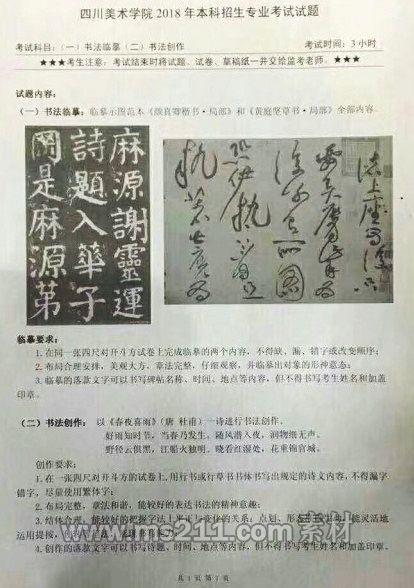 四川美术学院 2018 年本科招生专业考试试题
考试科目：（一）书法临摹（二）书法创作 考试时间：3 小时
★★★考生注意：考试结束时将试题、试卷、草稿纸一并交给监考老师。★★★
试题内容：
（一）书法临摹：临摹示图范本《颜真卿楷书·局部》和《黄庭坚草书·局部》全部内容。
麻源謝靈運
詩題入華子
岡是麻源第
临摹要求：
1.在同一张四尺对开斗方试卷上完成临摹的两个内容，不得缺、漏、错字或改变顺序；
2.布局合理安排，美观大方，章法完整，仔细观察，并临摹出对象的形神意态；
3.临摹的落款文字可以书写碑帖名称、时间、地点等内容，但不得书写考生姓名和加盖
印章。
（二）书法创作： 以《春夜喜雨》（唐 杜甫）一诗进行书法创作。
好雨知时节，当春乃发生。随风潜入夜，润物细无声。
野径云俱黑，江船火独明。晓看红湿处，花重锦官城。
创作要求：
1.在一张四尺对开斗方的试卷上，用行书或行草书书体书写出规定的诗文内容，不得漏字
错字，尽量使用繁体字；
2.布局完整，章法和谐，能较好的表达书法的精神意趣；
运用提按、
4.创作的落款文字可以书写诗题、时间、地点等内容，但不得书写考生姓名和加盖印章。
www.ms211.com 素材
共 1 页 第 1 页